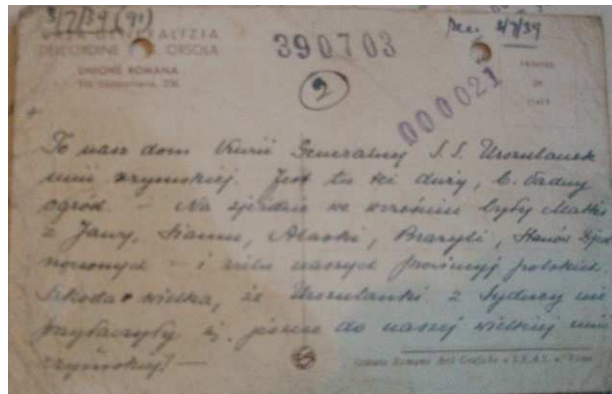 3/7/39 (9.)
Rec. 3/7/39
CASA GENERALIZIA
DELL'ORDINE DI S. ORSOLA
UNIONE ROMANA
Via Nomentana, 236
390703
2
000021
PRINTED
IN
ITALY
To nasz dom Kurii Generalnej S.S. Urszulanek
unii rzymskiej. Jest tu też duży, b. ładny
ogród. – Na zjeździe we wrześniu były Matki
z Jawy, Siamu, Alaski, Brazylii, Stanów Zjed
noczonych – i wielu naszych prowincyj polskich.
Szkoda wielka, że Urszulanki z Sydney nie
przyłączyły się jeszcze do naszej wielkiej unii
rzymskiej! —
Istituto Romano Arti Grafiche
Roma